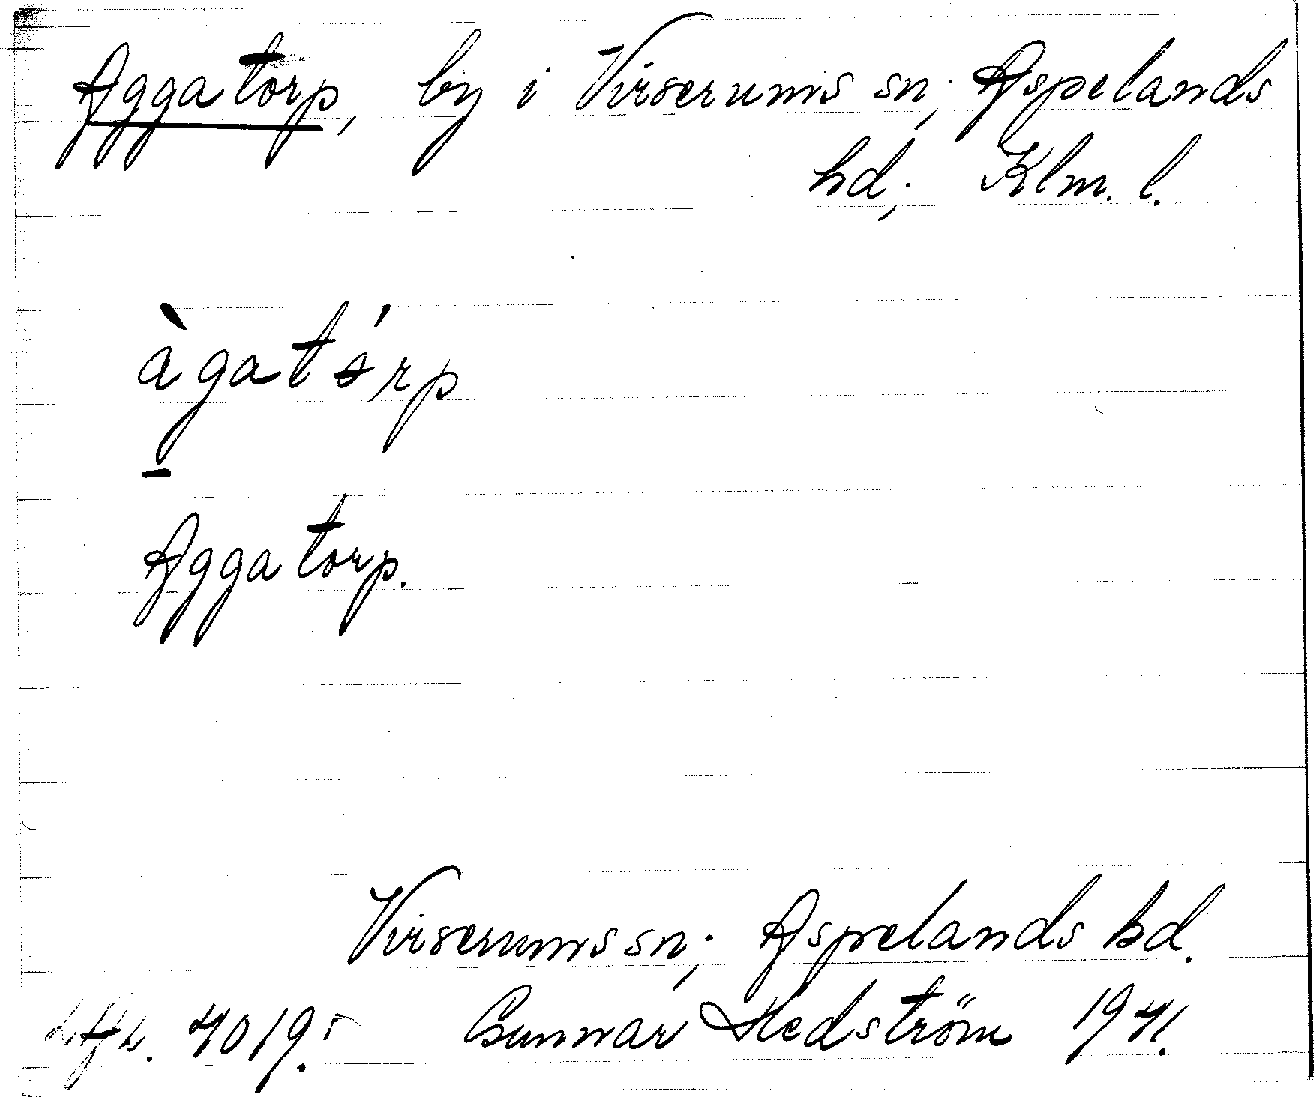 Aggatorp, by i Virserums sn; Aspelands
hd; Klm. l.
àgatórp
–
Aggatorp.
Virserums sn; Aspelands hd.
4019. Gunnar Hedström 1941.